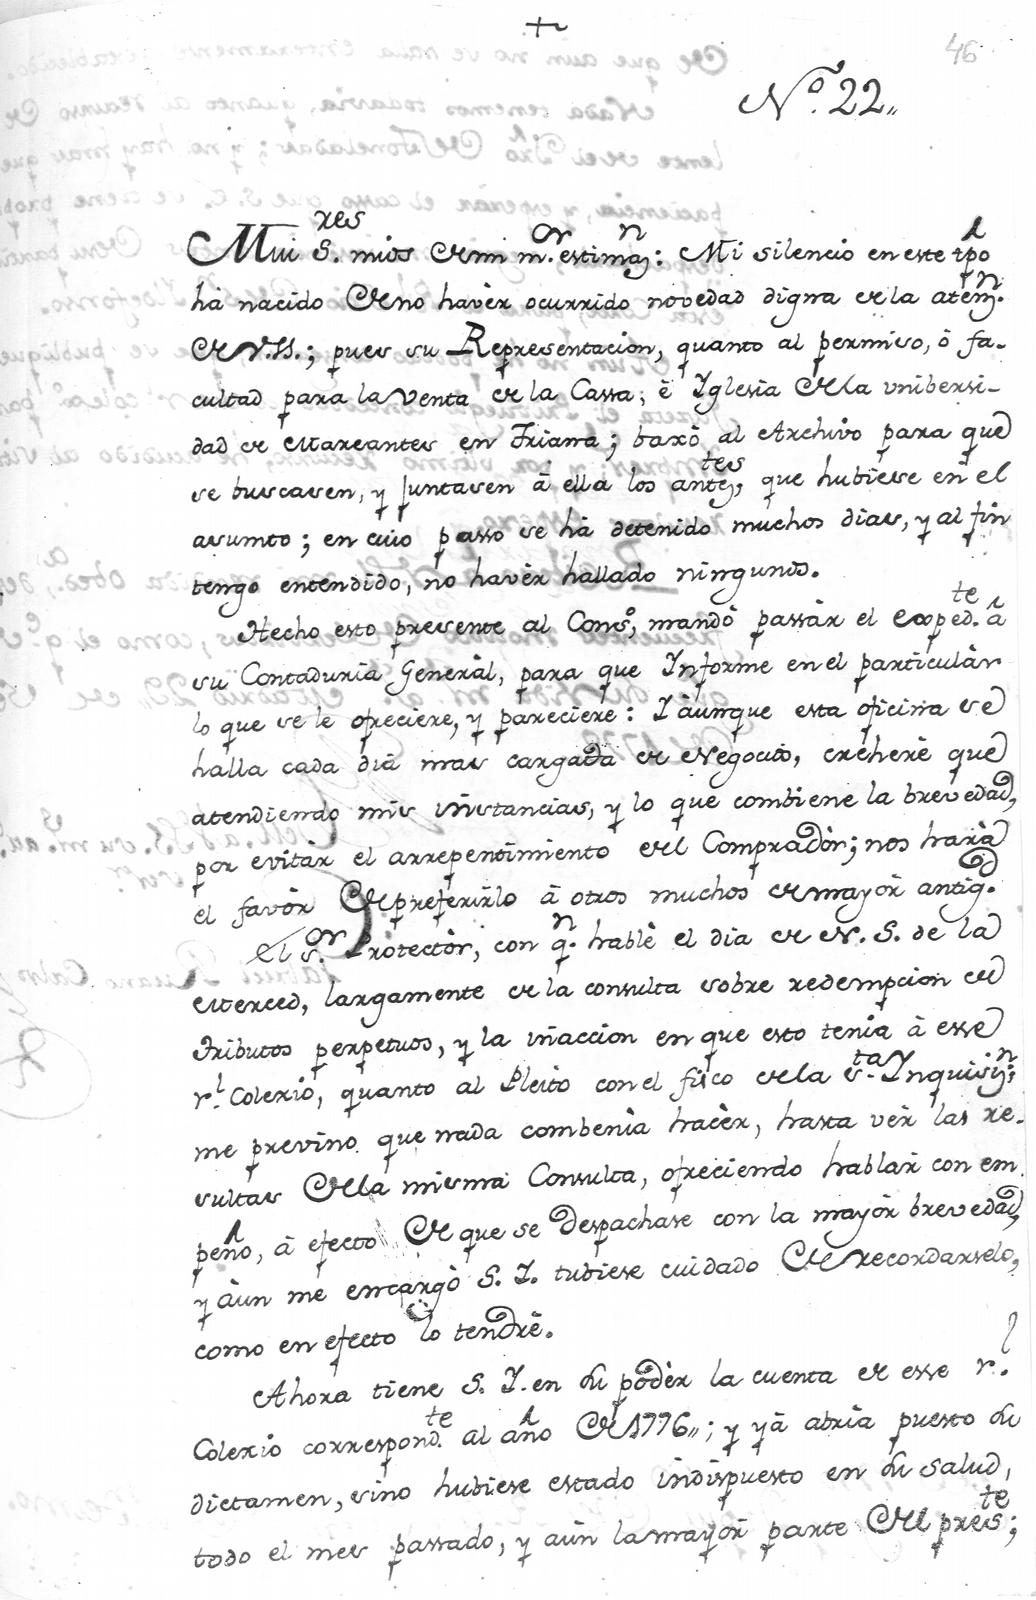 +
46
N.º 22,,
Mui S.res mios de mi m.or estimaz.n: Mi silencio en este tpo
ha nacido de no havèr ocurrido novedad digna de la atenz.n
de V.SS.; pues su Representacion, quanto al permiso, ò fa-
cultad para la Venta de la Cassa, è Iglesia de la Unibersi-
dad de Mareantes en Triana; baxò al Archivo para que
se buscasen, y juntasen à ella los antez.tes, que hubiese en el
asumto; en cuio passo se hà detenido muchos dias, y al fin
tengo entendido, no havèr hallado ningunos.
Hecho esto presente al Cons.º, mandò passàr el exped.te à
su Contaduria General, para que Informe en el particulàr
lo que se le ofreciere, y pareciere: I àunque esta oficina se
halla cada dià mas cargada de Negocios, creherè que
atendiendo mis instancias, y lo que combiene la brevedad,
por evitàr el arrepentimiento del Compradòr; nos harà
el favòr de preferirlo à otros muchos de mayòr antig.d
El S.or Protectòr, con q.n hablè el dia de N. S. de la
Merced, largamente de la consulta sobre redempcion de
tributos perpetuos, y la inaccion en que esto tenia à esse
r.l Colexio, quanto al Pleito con el fisco de la S.ta Inquisiz.n;
me previno que nada combenia hacèr, hasta vèr las re-
sultas de la misma Consulta, ofreciendo hablàr con em
peño, à efecto de que se despachase con la mayòr brevedad,
y àun me encargò S. I. tubiese cuidado de recordarselo,
como en efecto lo tendrè.
Ahora tiene S. I. en su podèr la cuenta de esse r.l
Colexio correspond.te al año de 1776,,; y yà abria puesto su
dictamen, sino hubiese estado indispuesto en su salud,
todo el mes passado, y aùn la mayòr parte del pres.te;